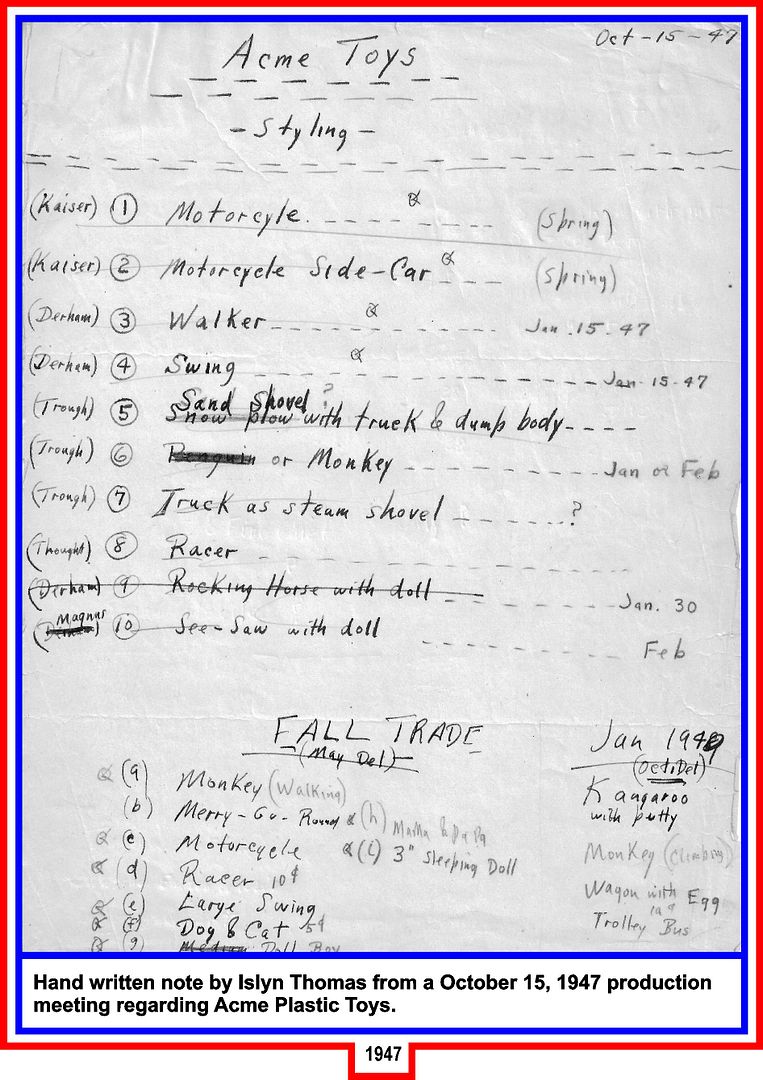 Oct-15-47
Acme Toys
- Styling -
(Kaiser) 1 Motorcyle. (Spring)
(Kaiser) 2 Motorcycle Side-Car (Spring)
(Derham) 3 Walker Jan. 15-47
(Derham) 4 Swing Jan-15-47
Sand Shovel ?
(Trough) 5 Snow plow with truck & dump body
(Trough) 6 Penguin or Monkey Jan or Feb
(Trough) 7 Truck as steam shovel ?
(Thought) 8 Racer
(Derham) 9 Rocking Horse with doll Jan. 30
Magnus
10 See-Saw with doll Feb
FALL TRADE
(May Del)
(a) Monkey (Walking)
(b) Merry-Go-Round & (h) MaMa & PaPa
(c) Motorcycle & (i) 3" Sleeping Doll
(d) Racer 10¢
(e) Large Swing
(f) Dog & Cat 5¢
(g) Medium Doll Boy
Jan 1949
(Oct. Del)
Kangaroo
with putty
Monkey (Climbing)
Wagon with Egg
Trolley Bus
Hand written note by Islyn Thomas from a October 15, 1947 production
meeting regarding Acme Plastic Toys.
1947